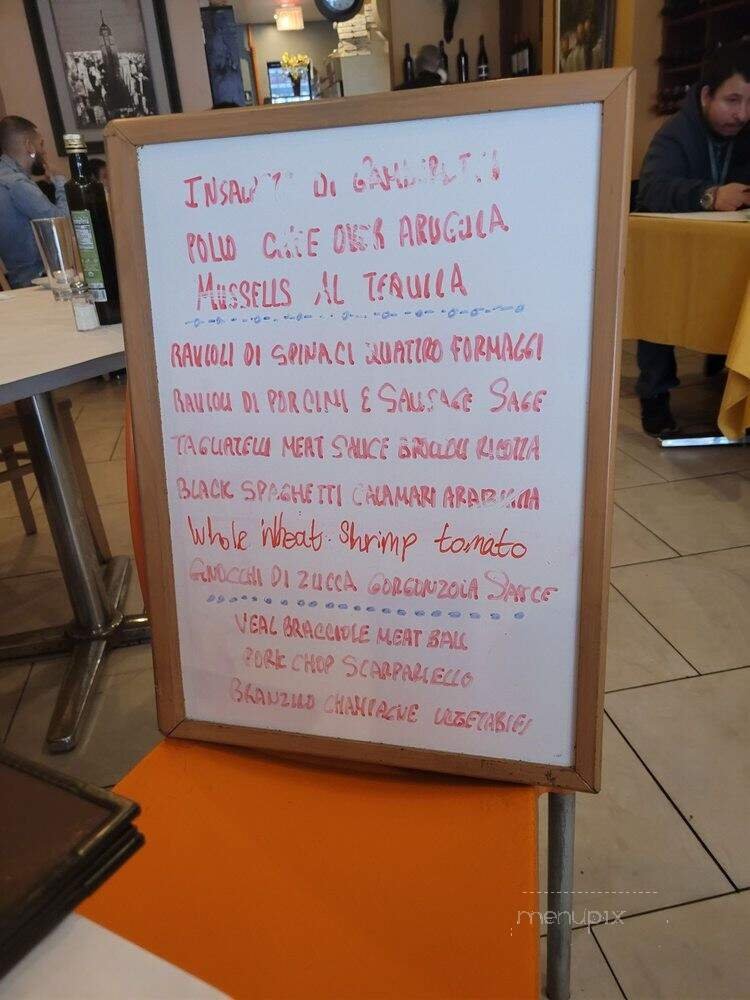 DI
POLLO OVER ARUGULA
MUSSELLS AL TEQUILA
RAVIOLI DI SPINACI QUATTRO FORMAGGI
RAVIOLI DI PORCINI E SAUSAGE SAGE
TAGLIATELLI MEAT SAUCE RICOTTA
BLACK SPAGHETTI CALAMARI
Whole Wheat Shrimp tomato
GNOCCHI DI ZUCCA GORGONZOLA SAUCE
VEAL BRACCIOLE MEAT BALL
PORK CHOP SCARPARIELLO
BRANZINO CHAMPAGNE VEGETABLES
menupix